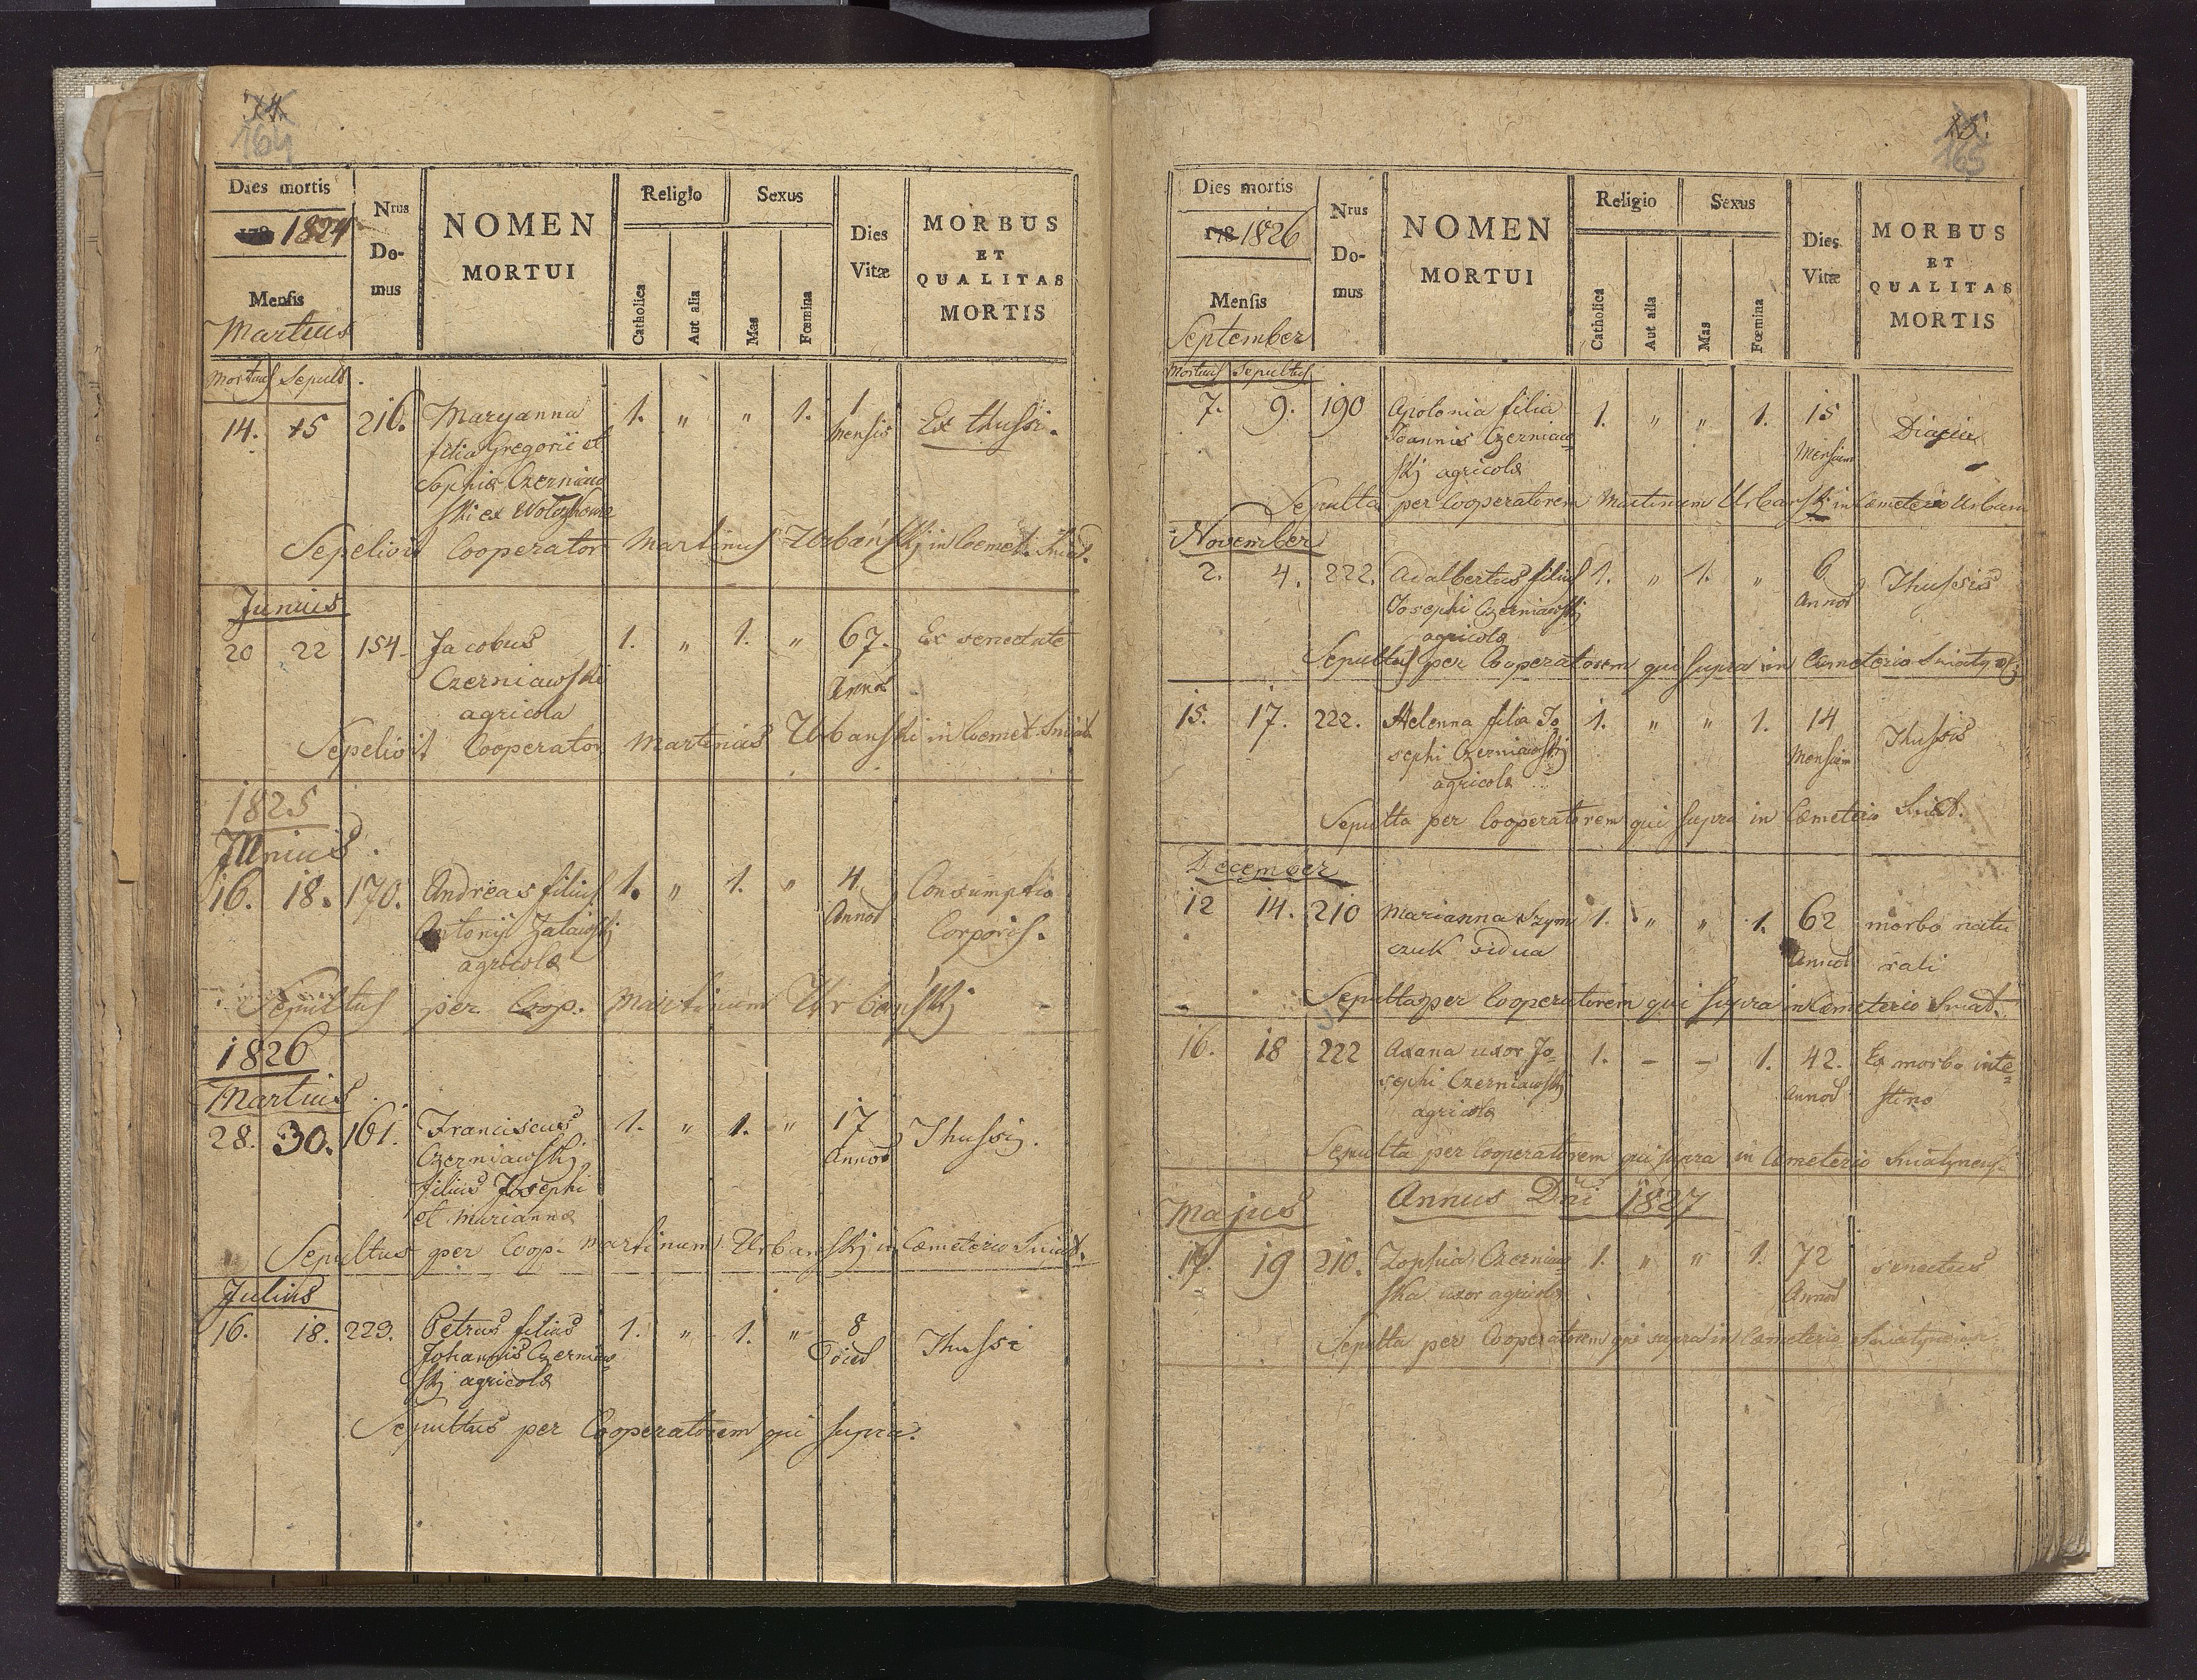 14.
164
Dies mortis
178 1824
Mensis
Martius
Nrus
Do-
mus
NOMEN
MORTUI
Religio
Catholica
Aut alia
Sexus
Mas
Fœmina
Dies
Vitæ
MORBUS
ET
QUALITAS
MORTIS
Mortuus Sepult.
14. 15 216. Maryanna 1. " " 1. 1 Ex thussi.
filia Gregorii et Mensis
Sophiæ Czerniaw
ski ex
Sepelivit Cooperator Martinus Urbanskj in Coemet. Sniat.
Junius
20 22 154. Jacobus 1. " 1. " 67. Ex senectute
Czerniawski Annos
agricola
Sepelivit Cooperator Martinus Urbanski in Coemet. Sniat
1825
Junius
16. 18. 170. Andreas filius 1. " 1. " 4 Consumptio
Antonij Zalaiwskj Annos Corporis.
agricolæ
Sepultus per Coop. Martinum Urbanskj
1826
Martius
28. 30. 161. Franciscus 1. " 1. " 17 Thussis.
Czerniawskj Annos
filius Josephi
et Mariannæ
Sepultus per Coop. Martinum Urbanskj in Cæmeterio Sniat.
Julius
16. 18. 223. Petrus filius 1. " 1. " 8 Thussi
Johannis Czerniaw Dies
skj agricolæ
Sepultus per Cooperatorem qui supra.
15.
165
Dies mortis
178 1826
Mensis
September
Nrus
Do-
mus
NOMEN
MORTUI
Religio
Catholica
Aut alia
Sexus
Mas
Fœmina
Dies
Vitæ
MORBUS
ET
QUALITAS
MORTIS
Mortuus Sepultus
7. 9. 190 Apolonia filia 1. " " 1. 15
Joannis Czerniaw Mensium
skj agricolæ
Sepulta per Cooperatorem Martinum Urbanski in Cæmeterio Urbano
November
2. 4. 222. Adalbertus filius 1. " 1. " 6 Thussis
Josephi Czerniawskj Annos
agricolæ
Sepultus per Cooperatorem qui supra in Cæmeterio
15. 17. 222. Helenna filia Jo 1. " " 1. 14 Thussis
sephi Czerniawskj Mensium
agricolæ
Sepulta per Cooperatorem qui supra in Cæmeterio Sniat.
December
12 14. 210 Marianna Szym 1. " " 1. 62 morbo natu
czuk vidua Annos rali
Sepulta per Cooperatorem qui supra in Cæmeterio Sniat.
16. 18 222 Axana uxor Jo- 1. - - 1. 42. Ex morbo inte-
sephi Czerniawskj Annos stino
agricolæ
Sepulta per Cooperatorem qui supra in Cæmeterio Sniatynensi
Majus Annus Dni 1827
17. 19 210. Zophia Czerniaw 1. " " 1. 72 senectus
ska uxor agricolæ Annos
Sepulta per Cooperatorem qui supra in Cæmeterio Sniatynensi